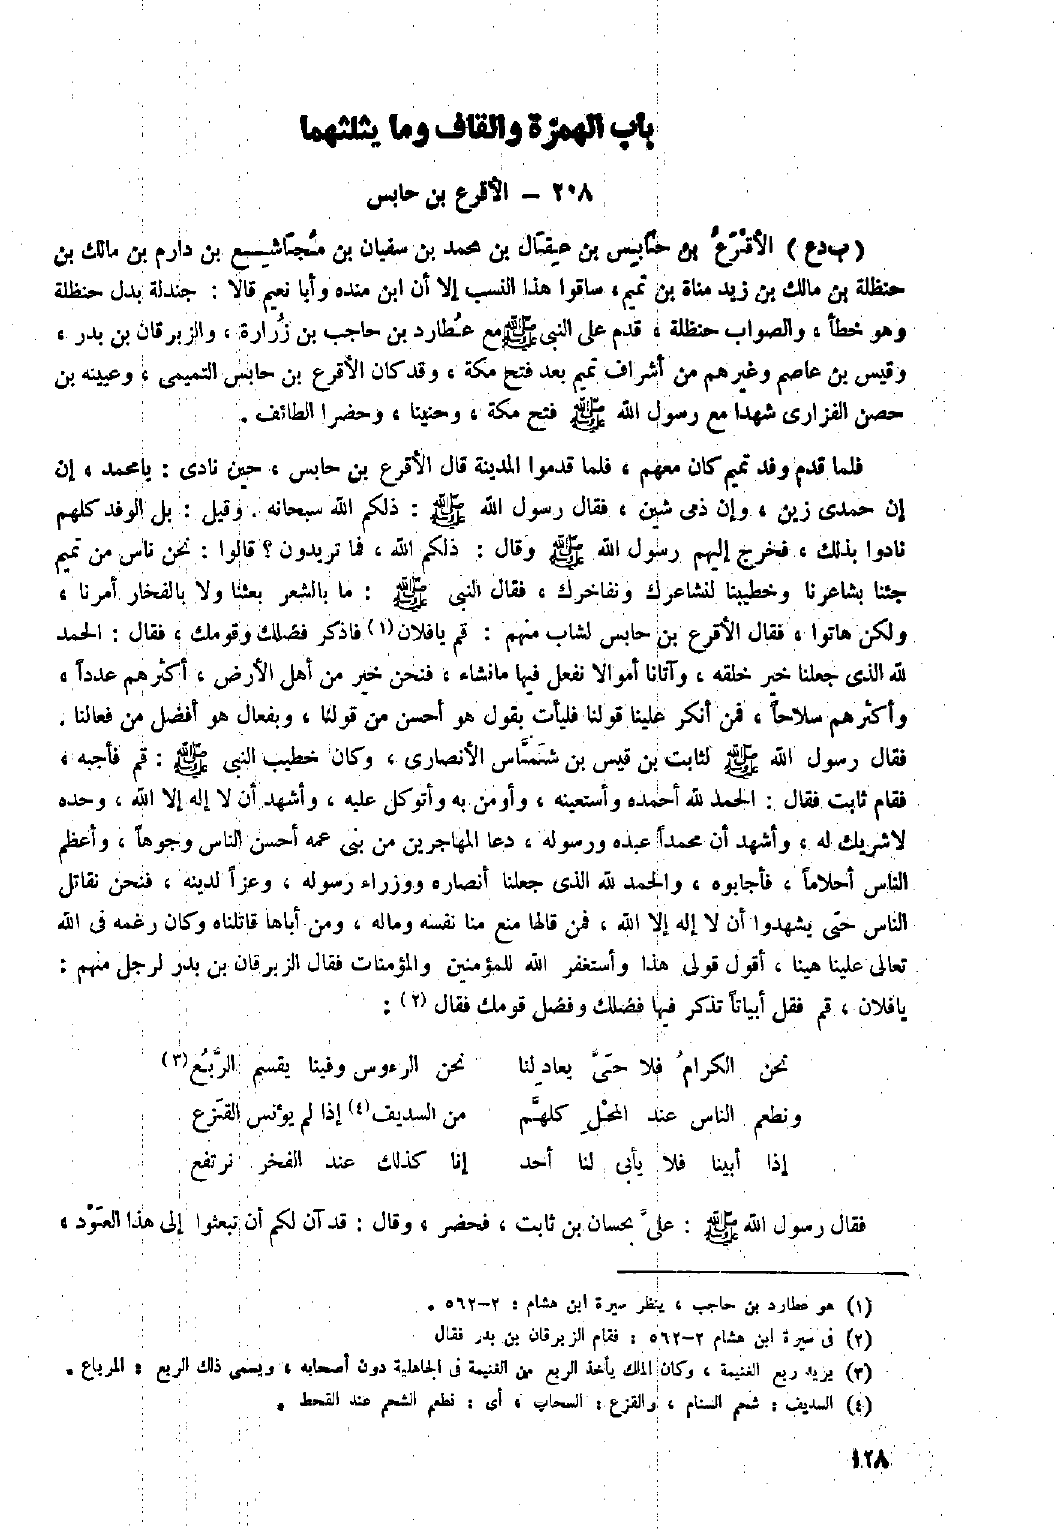 باب الهمزة والقاف وما يثلثهما
٢٠٨ – الأقرع بن حابس
( ب د ع ) الأقْرَعُ بن حَابِس بن عِقَال بن محمد بن سفيان بن مُجَاشِع بن دارم بن مالك بن
حنظلة بن مالك بن زيد مناة بن تميم ، ساقوا هذا النسب إلا أن ابن منده وأبا نعيم قالا : جندلة بدل حنظلة
وهو خطأ ، والصواب حنظلة ، قدم على النبي ﷺ مع عُطارد بن حاجب بن زُرارة ، والزبرقان بن بدر ،
وقيس بن عاصم وغيرهم من أشراف تميم بعد فتح مكة ، وقد كان الأقرع بن حابس التميمى ، وعيينه بن
حصن الفزارى شهدا مع رسول الله ﷺ فتح مكة ، وحنينا ، وحضرا الطائف .
فلما قدم وفد تميم كان معهم ، فلما قدموا المدينة قال الأقرع بن حابس ، حين نادى : يا محمد ، إن
إن حمدى زين ، وإن ذمى شين ، فقال رسول الله ﷺ : ذلكم الله سبحانه . وقيل : بل الوفد كلهم
نادوا بذلك ، فخرج إليهم رسول الله ﷺ وقال : ذلكم الله ، فما تريدون ؟ قالوا : نحن ناس من تميم
جئنا بشاعرنا وخطيبنا لنشاعرك ونفاخرك ، فقال النبى ﷺ : ما بالشعر بعثنا ولا بالفخار أمرنا ،
ولكن هاتوا ، فقال الأقرع بن حابس لشاب منهم : قم يا فلان (١) فاذكر فضلك وقومك ، فقال : الحمد
لله الذى جعلنا خير خلقه ، وآتانا أموالا نفعل فيها ما نشاء ، فنحن خير من أهل الأرض ، أكثرهم عدداً ،
وأكثرهم سلاحاً ، فمن أنكر علينا قولنا فليأت بقول هو أحسن من قولنا ، وبفعال هو أفضل من فعالنا .
فقال رسول الله ﷺ لثابت بن قيس بن شَمَّاس الأنصارى ، وكان خطيب النبى ﷺ : قم فأجبه ،
فقام ثابت فقال : الحمد لله أحمده وأستعينه ، وأومن به وأتوكل عليه ، وأشهد أن لا إله إلا الله ، وحده
لا شريك له ، وأشهد أن محمداً عبده ورسوله ، دعا المهاجرين من بنى عمه أحسن الناس وجوهاً ، وأعظم
الناس أحلاماً ، فأجابوه ، والحمد لله الذى جعلنا أنصاره ووزراء رسوله ، وعزاً لدينه ، فنحن نقاتل
الناس حتى يشهدوا أن لا إله إلا الله ، فمن قالها منع منا نفسه وماله ، ومن أباها قاتلناه وكان رغمه فى الله
تعالى علينا هينا ، أقول قولى هذا وأستغفر الله للمؤمنين والمؤمنات فقال الزبرقان بن بدر لرجل منهم :
يا فلان ، قم فقل أبياتاً تذكر فيها فضلك وفضل قومك فقال (٢) :
نحن الكرامُ فلا حىَّ يعادلنا نحن الرءوس وفينا يقسم الرُّبُع (٣)
ونطعم الناس عند المحْلِ كلهمُ من السديف (٤) إذا لم يؤنس القَزَع
إذا أبينا فلا يأبى لنا أحد إنا كذلك عند الفخر نرتفع
فقال رسول الله ﷺ : علىَّ بحسان بن ثابت ، فحضر ، وقال : قد آن لكم أن تبعثوا إلى هذا العَوْد ،
(١) هو عطارد بن حاجب ، ينظر سيرة ابن هشام : ٢–٥٦٢ .
(٢) فى سيرة ابن هشام ٢–٥٦٢ : فقام الزبرقان بن بدر فقال
(٣) يريد ربع الغنيمة ، وكان الملك يأخذ الربع من الغنيمة فى الجاهلية دون أصحابه ، ويسمى ذلك الربع : المرباع .
(٤) السديف : شحم السنام ، والقزع : السحاب ، أى : نطعم الشحم عند القحط .
١٢٨